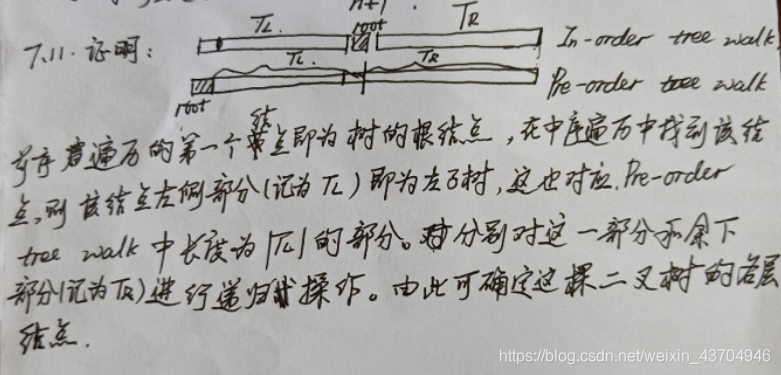 n+1
TL root TR In-order tree walk
7.11. 证明:
TL TR Pre-order tree walk
root
先序遍历的第一个结点即为树的根结点,在中序遍历中找到该结
点,则该结点左侧部分(记为TL)即为左子树,这也对应Pre-order
tree walk 中长度为|TL|的部分。分别对这一部分和余下
部分(记为TR)进行递归操作。由此可确定这棵二叉树的各层
结点.
https://blog.csdn.net/weixin_43704946